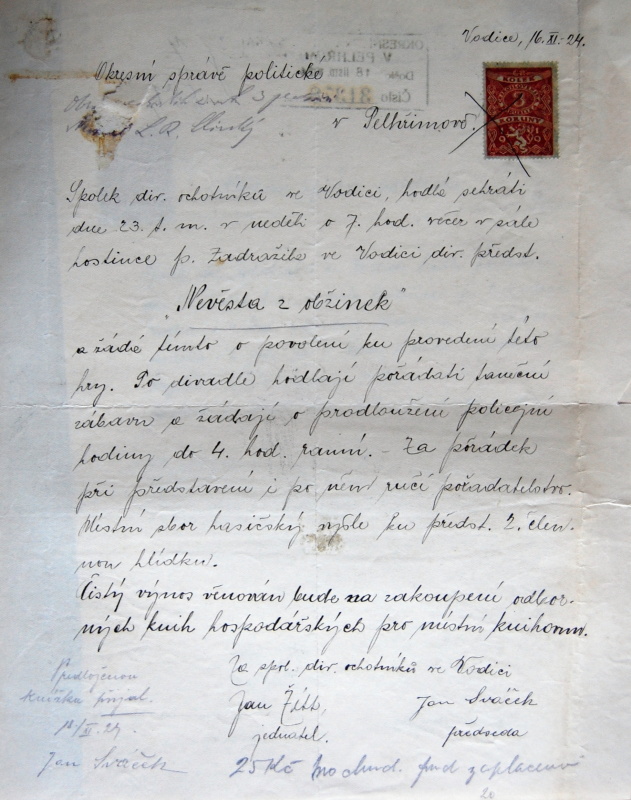 Vodice, 16.XI.-24.
Okresní správě politické
v Pelhřimově.
KOLEK
3
KORUNY
Spolek div. ochotníků ve Vodici, hodlá sehráti
dne 23. t. m. v neděli o 7. hod. večer v sále
hostince p. Zadražila ve Vodici div. předst.
„Nevěsta z obžinek"
a žádá tímto o povolení ku provedení této
hry. Po divadle hodlají pořádati taneční
zábavu a žádají o prodloužení policejní
hodiny do 4. hod. ranní. - Za pořádek
při představení i po něm ručí pořadatelstvo.
Místní sbor hasičský vyšle ku předst. 2. člen-
nou hlídku.
Čistý výnos věnován bude na zakoupení odbor-
ných knih hospodářských pro místní knihovnu.
Za spol. div. ochotníků ve Vodici
Jan Žitt,
jednatel.
Jan Sváček
předseda
Předloženou
knížku přijal
18/XI. 24.
Jan Sváček
25 Kč zaplaceno
20